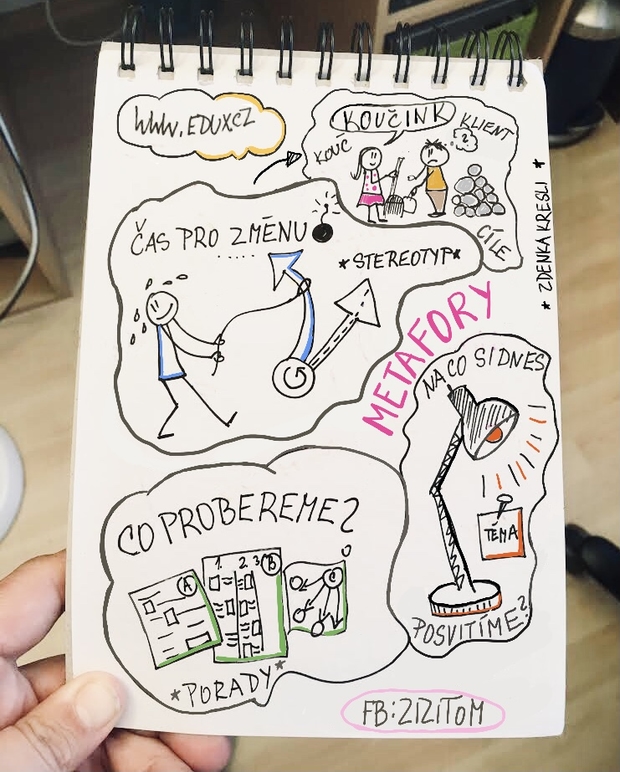 WWW.EDUX.CZ
KOUČINK
KOUČ
KLIENT
?
CÍLE
* ZDENKA KRESLÍ *
ČAS PRO ZMĚNU
*STEREOTYP*
METAFORY
NA CO SI DNES
TÉMA
POSVÍTÍME?
CO PROBEREME?
A
1. 2. 3. B
C
*PORADY*
FB:ZIZITOM